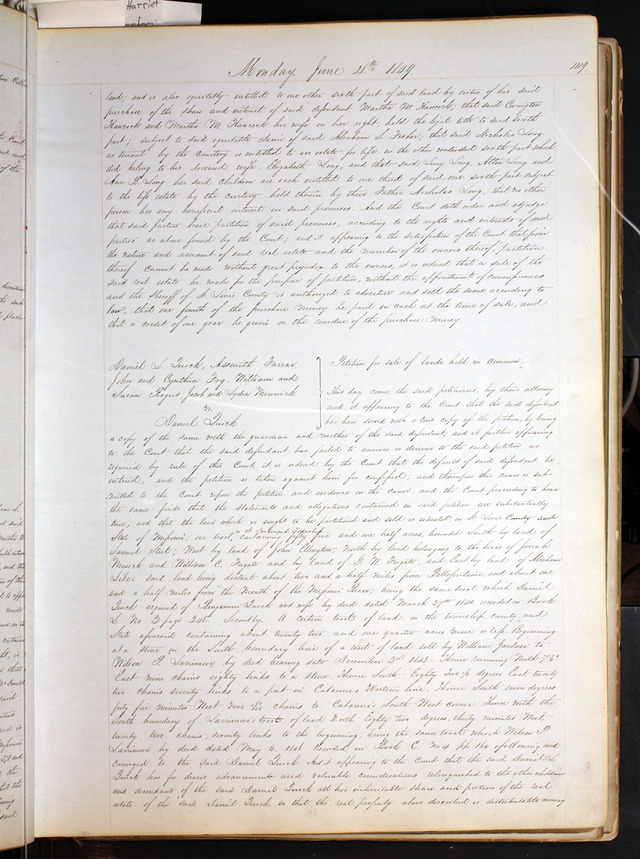 Harriet
Monday June 4th 1849.
149
land, and is also equitably entitled to one other sixth part of said land by virtue of his said
purchase of the share and interest of said defendant Martha M. Hancock; that said Covington
Hancock and Martha M. Hancock his wife in her right hold the legal title to said sixth
part; subject to said equitable claim of said Abraham S. that said Nicholas Long
as tenant by the courtesy is entitled to an estate for life in the other undivided sixth part which
did belong to his deceased wife, Elizabeth Long, and that said Long, Alton Long and
Ann E. Long her said children are each entitled to one third of said one sixth part subject
to the life estate by the courtesy held therein by their Father Nicholas Long, that no other
person has any beneficial interest in said premises. And the Court doth order and adjudge
that said parties have partition of said premises, according to the rights and interests of said
parties as above found by the Court; and it appearing to the satisfaction of the Court that from
the nature and amount of said real estate and the number of the owners thereof, partition
thereof cannot be made without great prejudice to the owners, it is ordered that a sale of the
said real estate be made for the purpose of partition, without the appointment of commissioners
and the Sheriff of St Louis County is authorized to advertise and sell the same according to
law, that one fourth of the purchase money be paid in cash at the time of sale, and
that a credit of one year be given on the residue of the purchase money
Daniel L. Quick, Asenith Farrar
John and Cynthia Fog, William and
Susan Rogers, Jacob and Lydia Minnick
vs
Daniel Quick
Petition for sale of lands held in common.
This day come the said petitioners by their attorney
and it appearing to the Court that the said defendant
has been served with a true copy of the petition, by leaving
a copy of the same with the guardian and mother of the said defendant, and it further appearing
to the Court that the said defendant has failed to answer or demur to the said petition as
required by rule of this Court, it is ordered by the Court that the default of said defendant be
entered, and the petition is taken against him for confessed, and thereupon this cause is sub-
mitted to the Court upon the petition and evidence in the cause, and the Court proceeding to hear
the same finds that the statements and allegations contained in said petition are substantially
true, and that the land which is sought to be partitioned and sold is situated in St Louis County and
State of Missouri, one tract, containing fifty five and one half acres, bounded South by land of
St Ferdinand Township
Samuel West by land of John North by land belonging to the heirs of Joseph
and William C. Fugate and by land of Fugate, and East by land of Abraham
said land being distant about two and a half miles from Bellefontaine and about one
and a half miles from the Mouth of the Missouri River; being the same tract which Daniel
Quick acquired of Benjamin Quick and wife by deed dated March 27th 1840 recorded in Book
No 2 page 248. Secondly. A certain tract of land in the township county and
State aforesaid containing about twenty two and one quarter acres more or less Beginning
at a stone in the South boundary line of a tract of land sold by William Gardner to
Wilson P. Larrimore by deed bearing date December 2nd 1843. Thence running North 7½°
East nine chains eighty links to a stone Thence South Eighty two ¾ degrees East twenty
two chains seventy links to a post in Cabanne's Western line. Thence South seven degrees
forty five minutes West nine chains to Cabanne's South West corner Thence with the
South boundary of Larrimore tract of land North Eighty two degrees, thirty minutes West,
twenty two chains, seventy links to the beginning, being the same tract which Wilson P.
Larrimore by deed dated May 6, 1846 recorded in Book C. No 4 pp 184 & following and
conveyed to the said Daniel Quick. And it appearing to the Court that the said Daniel L.
Quick has for divers advancements and valuable considerations relinquished to the other children
and descendants of the said Daniel Quick all his inheritable share and portion of the real
estate of the said Daniel Quick so that the real property above described is distributable among